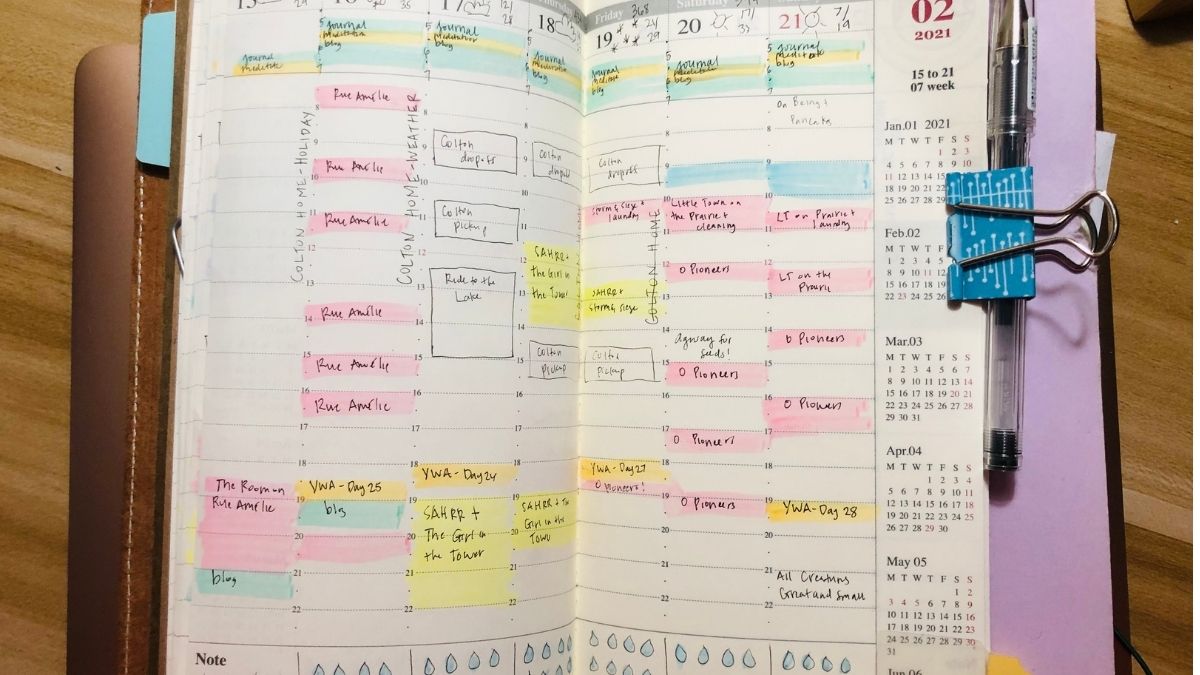 15
29
Journal
meditate
The Room on
Rue Amélie
blog
16
35
Journal
meditation
blog
COLTON HOME-HOLIDAY
Rue Amélie
Rue Amélie
Rue Amélie
Rue Amélie
Rue Amélie
Rue Amélie
YWA-Day 25
blog
17
12/
28
Journal
meditation
blog
COLTON HOME-WEATHER
Colton
dropoff
Colton
pickup
Ride to the
Lake
YWA-Day 24
SAHRR +
The Girl in
the Tower
18
Journal
meditation
blog
Colton
dropoff
SAHRR +
the Girl in
the Tower
Colton
pickup
SAHRR + The
Girl in the
Tower
Friday
368
19
24/
29
Journal
meditate
blog
Colton
dropoff
Storm & Siege +
laundry
SAHRR +
Storm & Siege
Colton
pickup
YWA-Day 27
O Pioneers!
Saturday
20
17/
33
Journal
meditation
blog
COLTON HOME
Little Town on
the Prairie +
cleaning
O Pioneers
Agway for
seeds!
O Pioneers
O Pioneers
O Pioneers
21
7/
19
Journal
meditate
blog
On Being +
Pancakes
LT on Prairie +
laundry
LT on the
Prairie
O Pioneers
O Pioneers
YWA-Day 28
All Creatures
Great and Small
Note
02
2021
15 to 21
07 week
Jan.01 2021
M T W T F S S
1 2 3
4 5 6 7 8 9 10
11 12 13 14 15 16 17
18 19 20 21 22
25 26 27 28 29
Feb.02
M T W T F S S
1 2 3 4 5
8 9 10 11 12
15 16 17 18 19
22 23 24 25 26
Mar.03
M T W T F S S
1 2 3 4 5 6 7
8 9 10 11 12 13 14
15 16 17 18 19 20 21
22 23 24 25 26 27 28
29 30 31
Apr.04
M T W T F S S
1 2 3 4
5 6 7 8 9 10 11
12 13 14 15 16 17 18
19 20 21 22 23 24 25
26 27 28 29 30
May 05
M T W T F S S
1 2
3 4 5 6 7 8 9
10 11 12 13 14 15 16
17 18 19 20 21 22 23
24 25 26 27 28 29 30
31
Jun 06